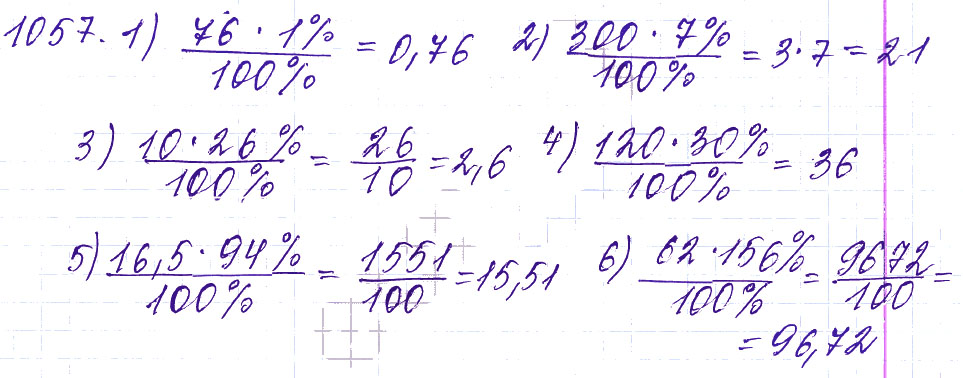 1057. 1) (76 · 1%)/(100%) = 0,76 2) (300 · 7%)/(100%) = 3 · 7 = 21
3) (10 · 26%)/(100%) = 26/10 = 2,6 4) (120 · 30%)/(100%) = 36
5) (16,5 · 94%)/(100%) = 1551/100 = 15,51 6) (62 · 156%)/(100%) = 9672/100 =
= 96,72